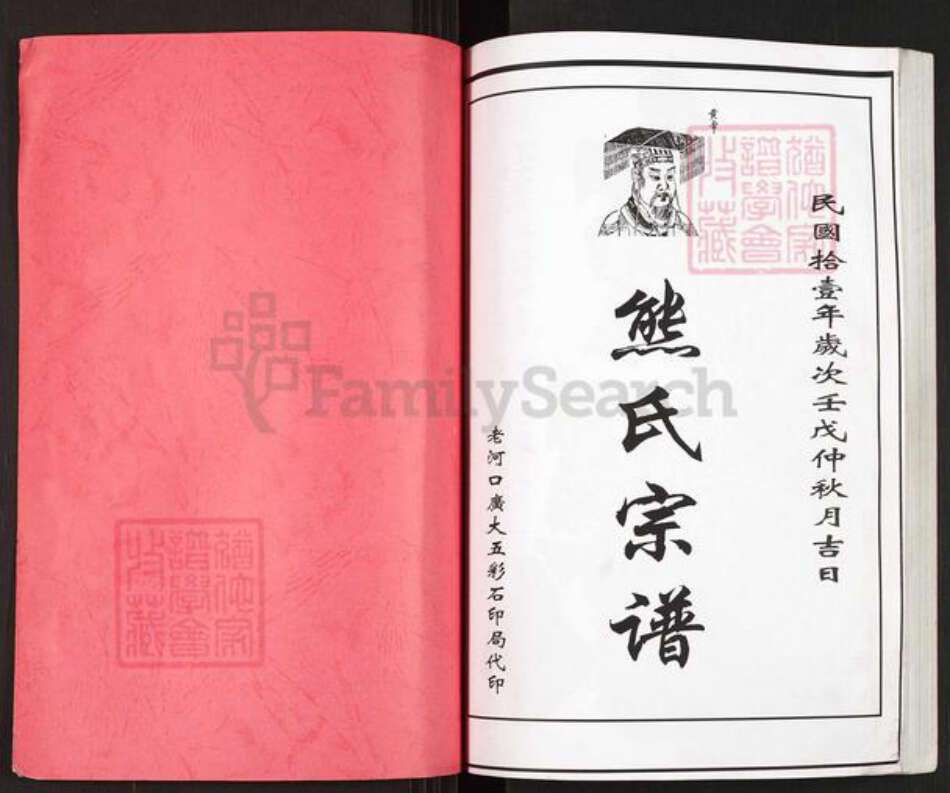 民國拾壹年歲次壬戊仲秋月吉日
黄帝
熊氏宗谱
老河口廣大五彩石印局代印
猶他家
譜學會
收藏
FamilySearch
猶他家
譜學會
收藏